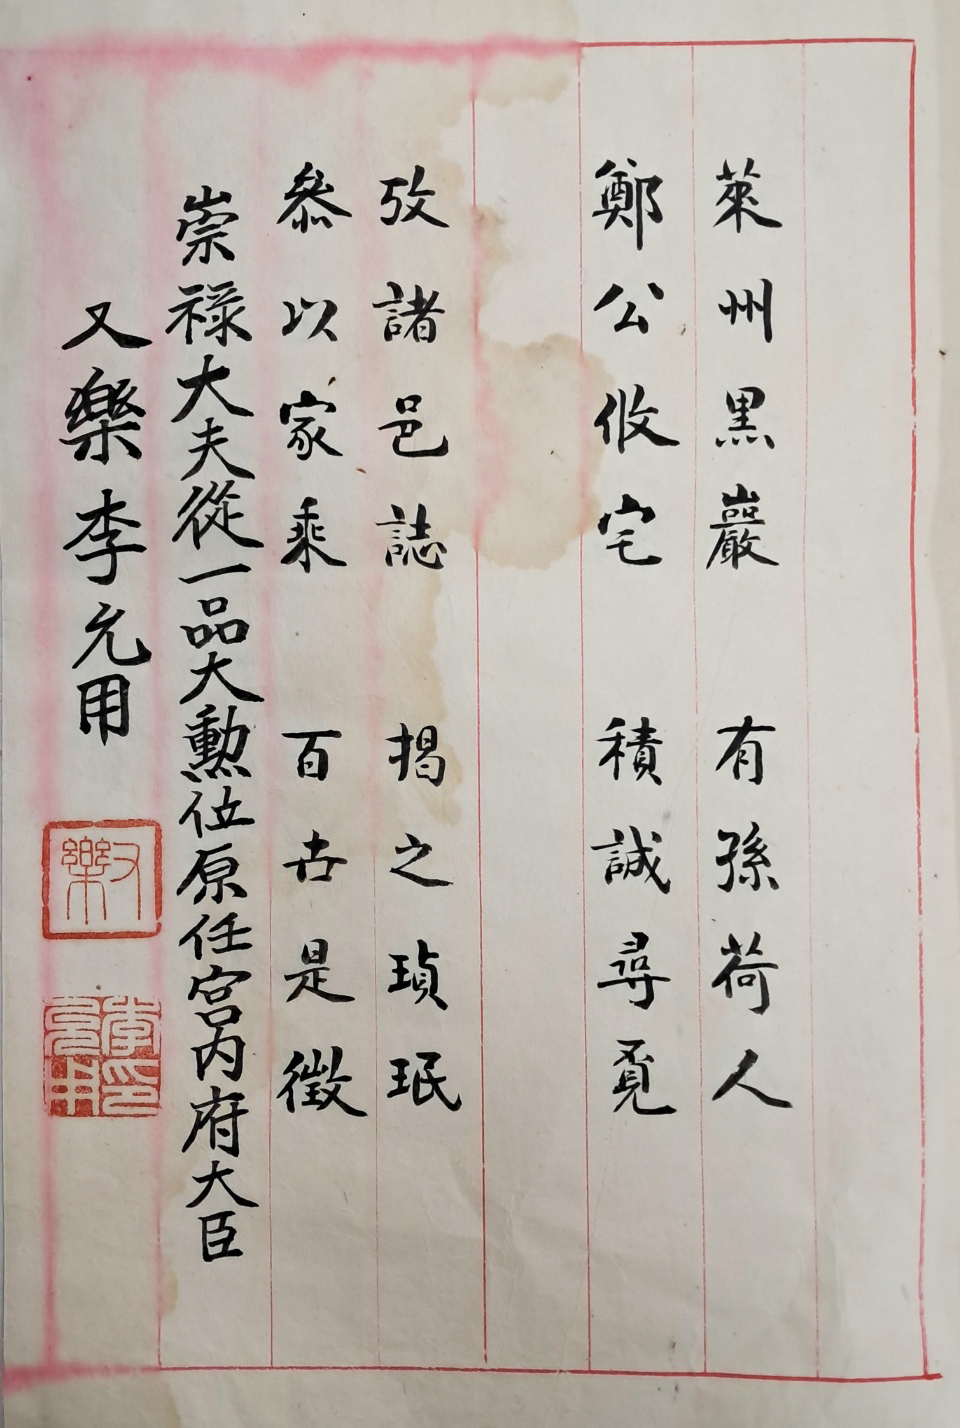 萊州黑巖 有孫荷人
鄭公攸宅 積誠尋覔
攷諸邑誌 揭之瑱珉
叅以家乘 百世是徵
崇祿大夫從一品大勳位原任宮內府大臣
又樂李允用
又樂
李允用印